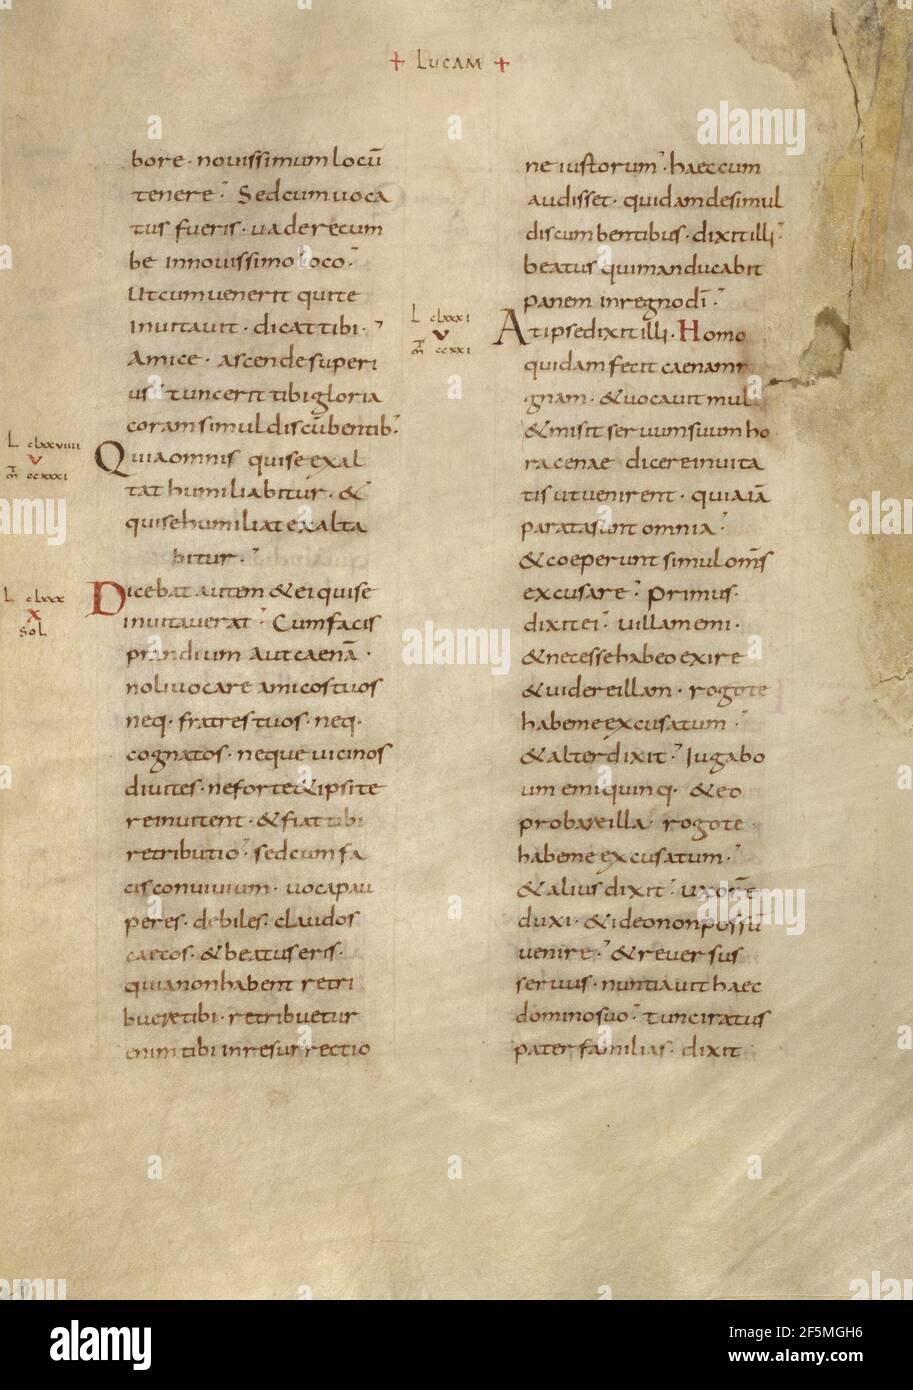 + LUCAM +
bore · nouissimum locū
tenere · Sed cum uoca
tus fueris · uade recum
be in nouissimo loco ·
Ut cum uenerit qui te
inuitauit · dicat tibi ·
Amice · ascende superi
us · tunc erit tibi gloria
coram simul discūbentib·
L clxxviiii
V
m ccxxxi
Quia omnis qui se exal
tat humiliabitur · &
qui se humiliat exalta
bitur ·
L clxxx
X
SOL
Dicebat autem & ei qui se
inuitauerat · Cum facis
prandium aut caenā ·
noli uocare amicos tuos
neq · fratres tuos · neq ·
cognatos · neque uicinos
diuites · ne forte & ipsi te
reinuitent · & fiat tibi
retributio · sed cum fa
cis conuiuium · uoca pau
peres · debiles · claudos
caecos · & beatus eris ·
quia non habent retri
buere tibi · retribuetur
enim tibi in resurrectio
ne iustorum · haec cum
audisset · quidam de simul
discumbentibus · dixit illi ·
beatus qui manducabit
panem in regno dī ·
L clxxxi
V
m ccxxi
At ipse dixit illi · Homo
quidam fecit caenam
gnam · & uocauit mul
& misit seruum suum ho
ra cenae dicere inuita
tis ut uenirent · quia iā
parata sunt omnia ·
& coeperunt simul om̄s
excusare · Primus ·
dixit ei · uillam emi ·
& necesse habeo exire
& uidere illam · rogo te
habe me excusatum ·
& alter dixit · Iuga bo
um emi quinq · & eo
probare illa · rogo te ·
habe me excusatum ·
& alius dixit · uxorē
duxi · & ideo non possū
uenire · & reuersus
seruus · nuntiauit haec
domino suo · tunc iratus
pater familias · dixit
alamy
alamy
Image ID: 2F5MGH6
www.alamy.com